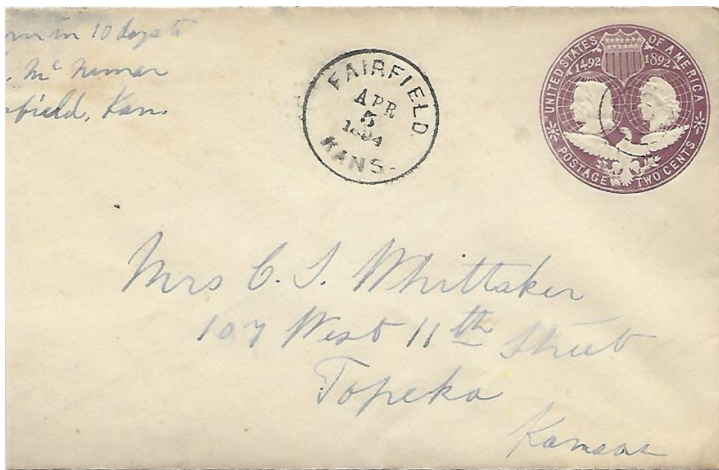 in 10 days to
Mc Nemar
field, Kan.
FAIRFIELD
APR
5
1894
KANS.
UNITED STATES OF AMERICA
1492 1892
POSTAGE TWO CENTS
Mrs C. S. Whittaker
107 West 11th Street
Topeka
Kansas